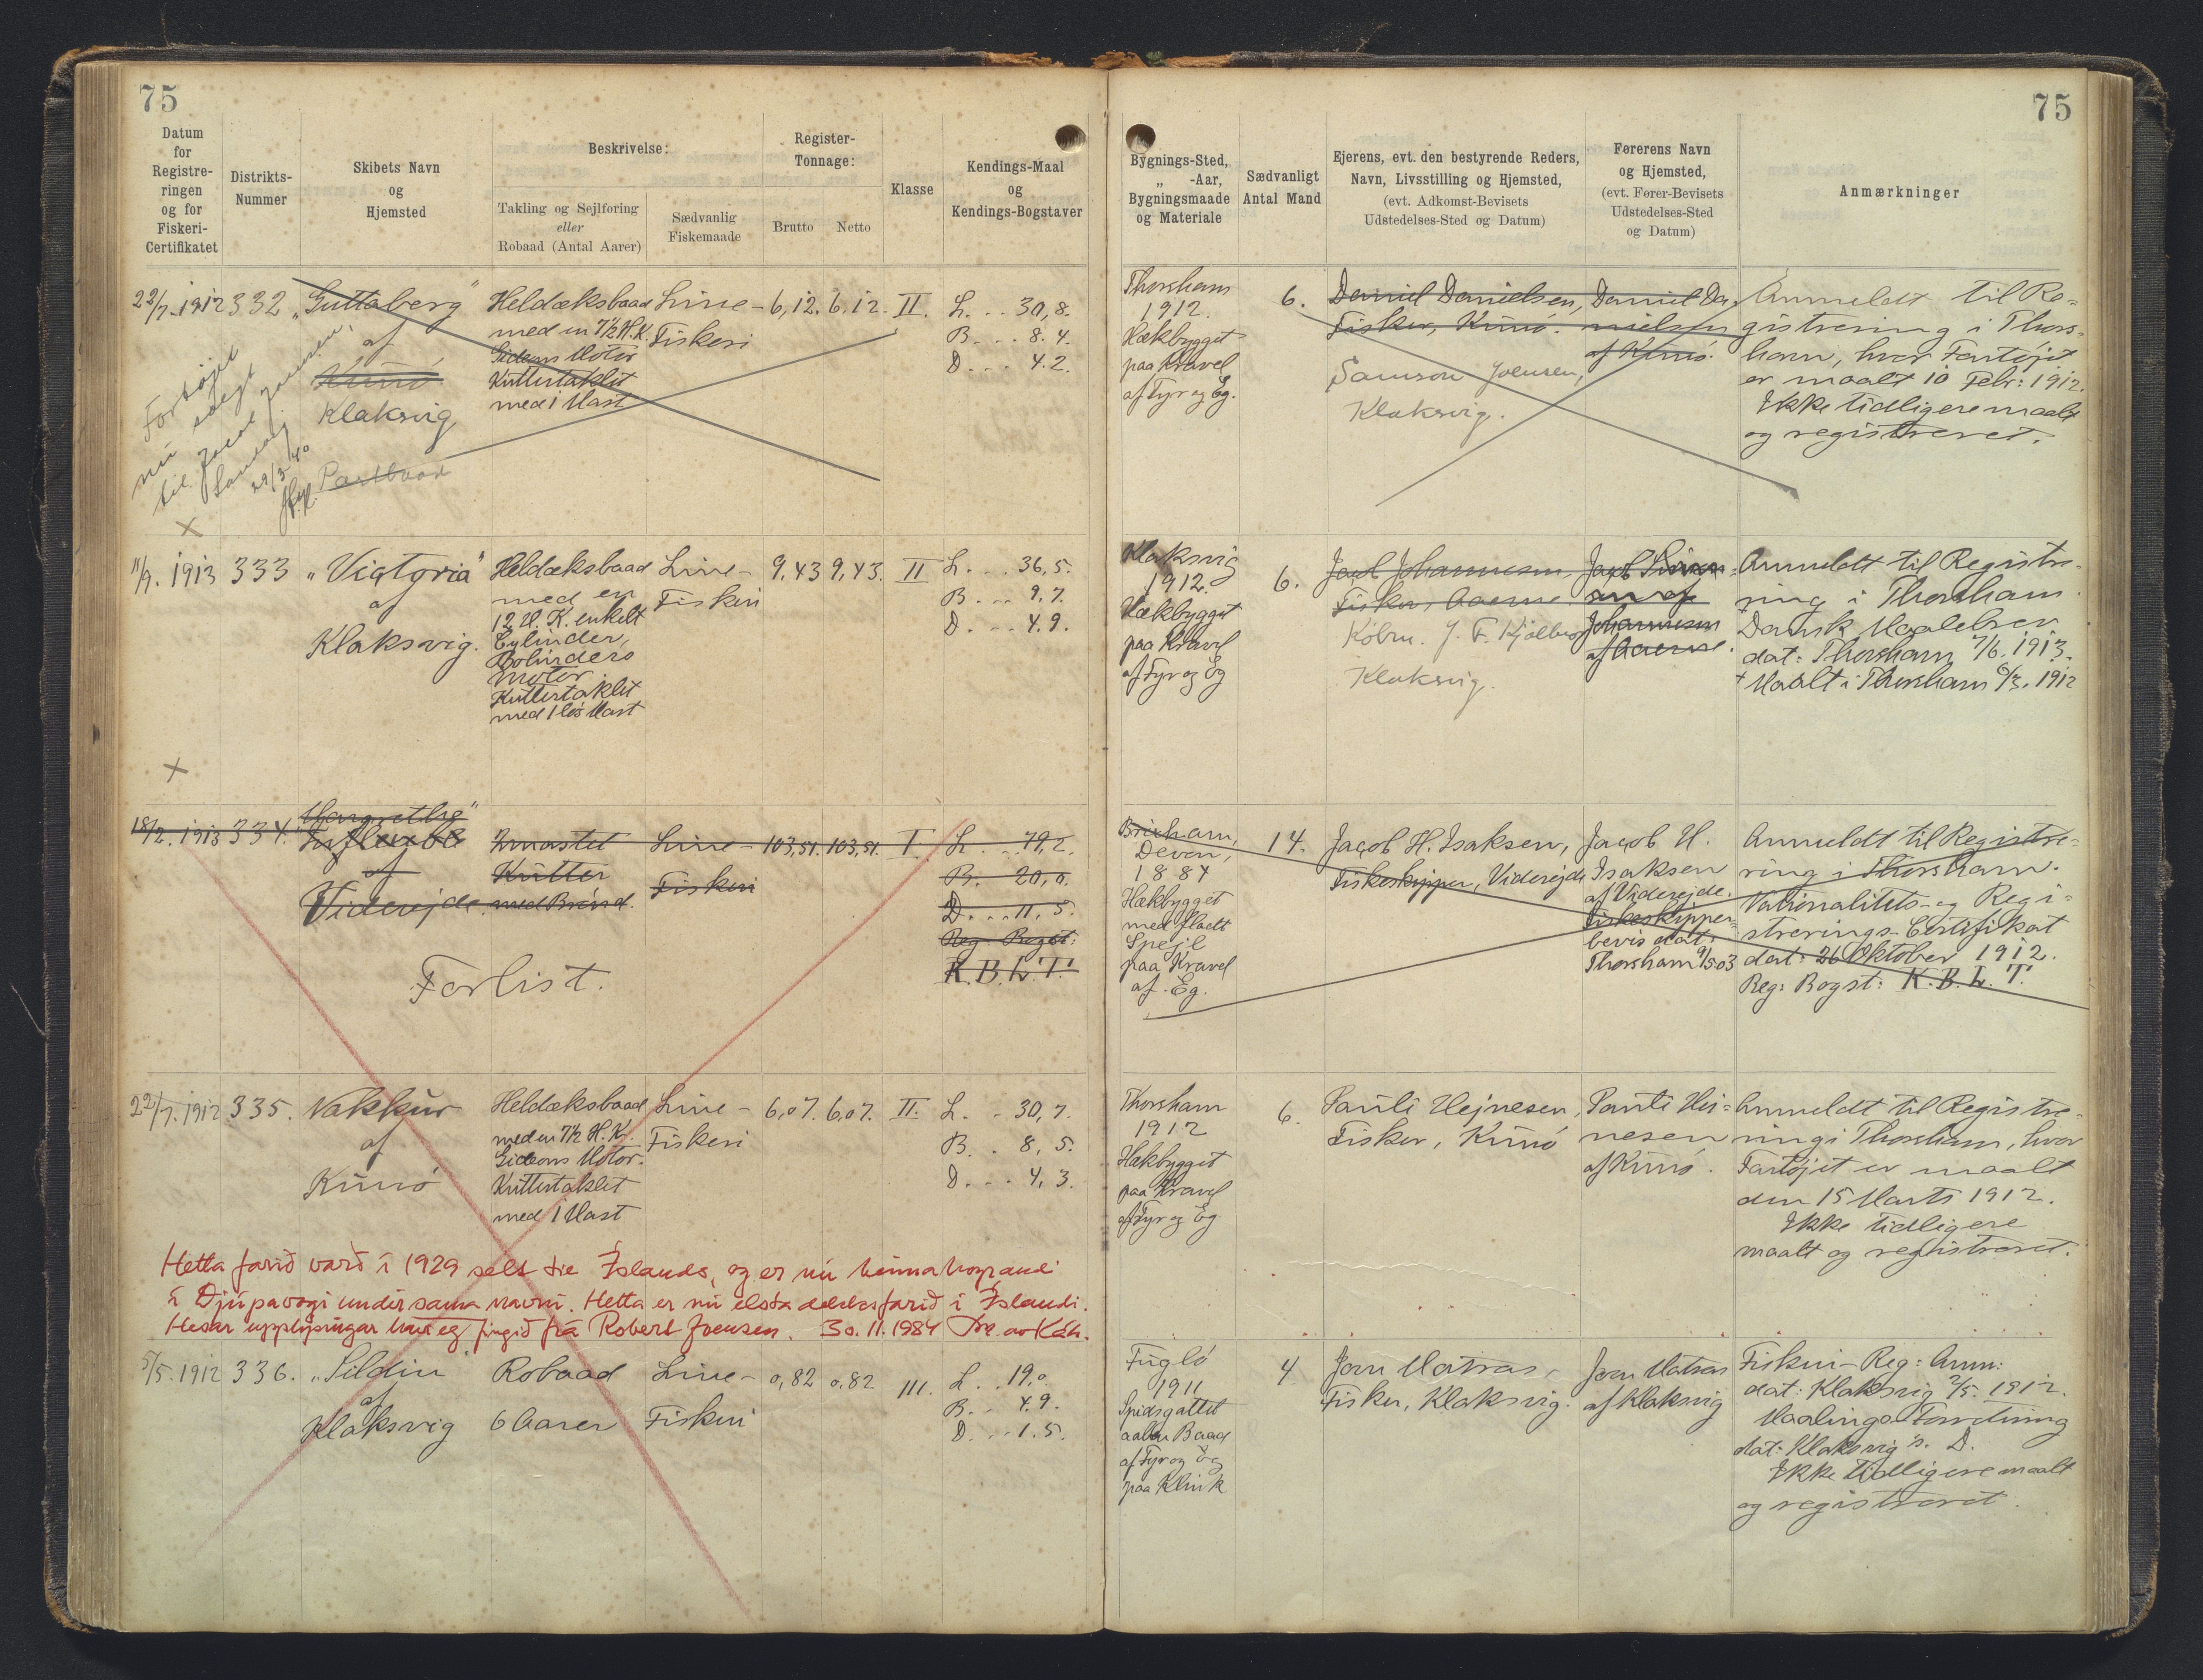 75
75
Datum
for
Registre-
ringen
og for
Fiskeri-
Certifikatet
Distrikts-
Nummer
Skibets Navn
og
Hjemsted
Beskrivelse:
Takling og Sejlføring
eller
Robaad (Antal Aarer)
Sædvanlig
Fiskemaade
Register-
Tonnage:
Brutto
Netto
Klasse
Kendings-Maal
og
Kendings-Bogstaver
Bygnings-Sted,
„ -Aar,
Bygningsmaade
og Materiale
Sædvanligt
Antal Mand
Ejerens, evt. den bestyrende Reders,
Navn, Livsstilling og Hjemsted,
(evt. Adkomst-Bevisets
Udstedelses-Sted og Datum)
Førerens Navn
og Hjemsted,
(evt. Fører-Bevisets
Udstedelses-Sted
og Datum)
Anmærkninger
22/7. 1912
332
„Guttaberg"
af
Kunö
Klaksvig
Postbaad
Fortöjet
nu solgt
til Jacob Joensen,
29/3 40
Heldæksbaad
med en 7½ H.K.
Gideons Motor
Kuttertaklet
med 1 Mast
Line-
Fiskeri
6,12.
6,12.
II.
L. . . 30,8.
B. . . 8.4.
D. . . 4.2.
Thorshavn
1912.
Hækbygget
paa Kravel
af Fyr og Eg.
6.
Daniel Danielsen,
Fisker, Kunö.
Samson Joensen,
Klaksvig.
Daniel Da-
nielsen
af Kunö.
Anmeldt til Re-
gistrering i Thors-
havn, hvor Fartöjet
er maalt 10 Febr: 1912.
Ikke tidligere maalt
og registreret.
x
11/9. 1913
333
„Victoria"
af
Klaksvig.
Heldæksbaad
med en
12 H. K. enkelt
Cylinder,
Bolinders
Motor
Kuttertaklet
med 1 løs Mast
Line-
Fiskeri
9,43
9,43.
II
L. . . 36,5.
B. . . 9,7.
D. . . 4.9.
Klaksvig
1912.
Hækbygget
paa Kravel
af Fyr og Eg
6.
Jacob Johannesen,
Fisker,
Købm. J. F. Kjølbro
Klaksvig.
Johannesen
Anmeldt til Registre-
ring i Thorshavn.
Dansk Maalebrev
dat: Thorshavn 7/6. 1913.
Maalt i Thorshavn 6/3. 1912
x
18/2. 1913
334.
Margrethe"
af
Viderejde.
2mastet
Kutter
med Brönd.
Line-
Fiskeri
103,51.
103,51.
I.
L. . . 79,2.
B. 20,0.
D. . . 11,5.
Reg: Bogst:
K. B. L. T.
Forlist.
Brixham,
Devon,
1884
Hækbygget
med fladt
Spejl
paa Kravel
af Eg.
14.
Jacob H. Isaksen,
Fiskeskipper, Viderejde
Jacob H.
Isaksen
af Viderejde.
Fiskeskipper-
bevis dat:
Thorshavn 9/5 03
Anmeldt til Registre-
ring i Thorshavn.
Nationalitets- og Regi-
strerings-Certifikat
dat: 26 Oktober 1912.
Reg: Bogst: K. B. L. T.
22/7. 1912
335.
Nakkur
af
Kunö
Heldæksbaad
med en 7½ H.K.
Gideons Motor.
Kuttertaklet
med 1 Mast
Line-
Fiskeri
6,07.
6,07.
II.
L. . 30,7.
B. . 8,5.
D. . . 4,3.
Thorshavn
1912
Hækbygget
paa Kravel
af Fyr og Eg
6.
Pauli Hejnesen,
Fisker, Kunö
Pauli Hei-
nesen
af Kunö.
Anmeldt til Registre-
ring i Thorshavn, hvor
Fartöjet er maalt
den 15 Marts 1912.
Ikke tidligere
maalt og registreret.
Hetta farið varð í 1929 selt til Íslands, og er nú heimahoyrandi
á Djúpavogi undir sama navni. Hetta er nú elsta dekksfarið í Íslandi.
Hesar upplýsingar havi eg fingið frá Robert Joensen. 30.11.1984
5/5. 1912
336.
„Sildin"
af
Klaksvig
Robaad
6 Aarer
Line-
Fiskeri
0,82
0,82
III.
L. . 19,0.
B. . 4.9.
D. . . 1.5.
Fuglö
1911
Spidsgattet
aaben Baad
af Fyr og Eg
paa Klink
4.
Joen Matras,
Fisker, Klaksvig.
Joen Matras
af Klaksvig
Fiskeri-Reg: Anm:
dat: Klaksvig 2/5. 1912.
Maalings Forretning
dat: Klaksvig s. D.
Ikke tidligere maalt
og registreret.